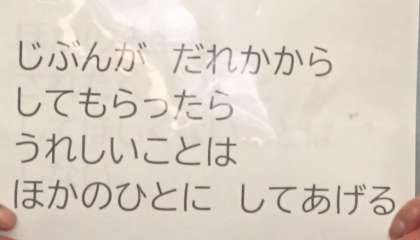 じぶんが　だれかから
してもらったら
うれしいことは
ほかのひとに　してあげる